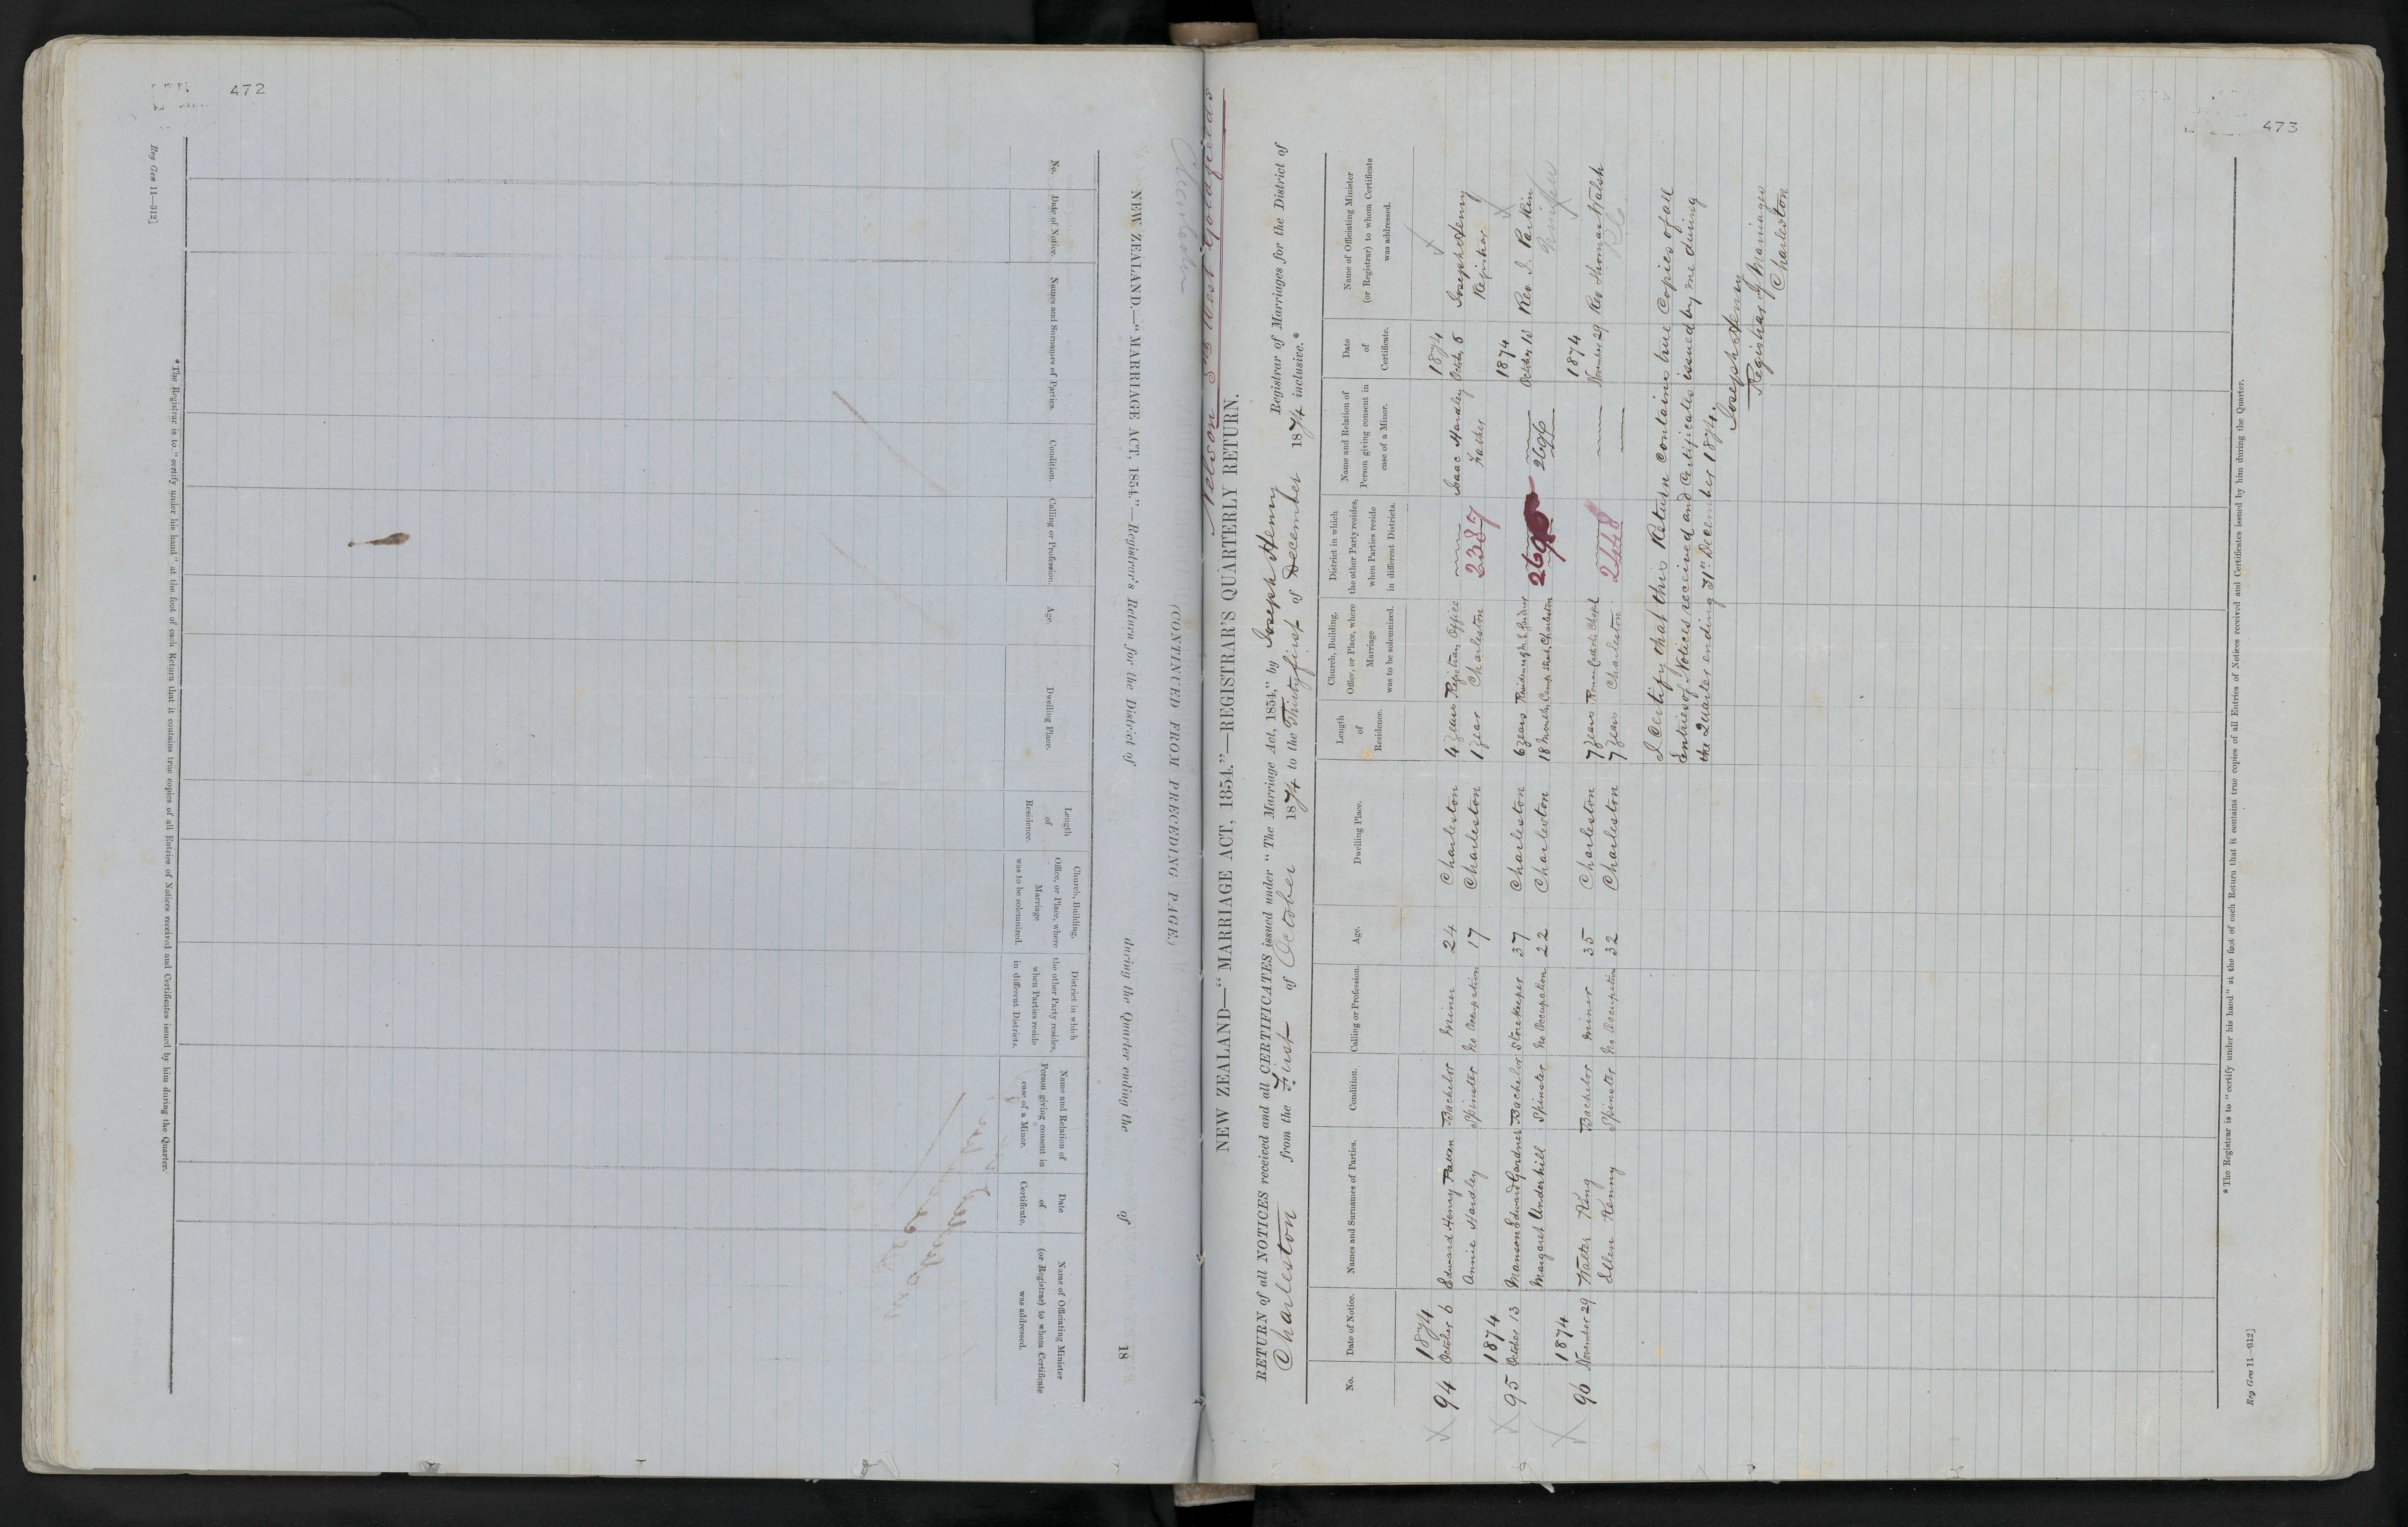 472
Reg Gen 11—312]
NEW ZEALAND.—"MARRIAGE ACT, 1854."—Registrar's Return for the District of during the Quarter ending the of 18
(CONTINUED FROM PRECEDING PAGE.)
No.
Date of Notice.
Names and Surnames of Parties.
Condition.
Calling or Profession.
Age.
Dwelling Place.
Length of Residence.
Church, Building, Office, or Place, where Marriage was to be solemnized.
District in which the other Party resides, when Parties reside in different Districts.
Name and Relation of Person giving consent in case of a Minor.
Date of Certificate.
Name of Officiating Minister (or Registrar) to whom Certificate was addressed.
*The Registrar is to "certify under his hand" at the foot of each Return that it contains true copies of all Entries of Notices received and Certificates issued by him during the Quarter.
473
Charleston
Nelson Sth West Goldfields
NEW ZEALAND—"MARRIAGE ACT, 1854."—REGISTRAR'S QUARTERLY RETURN.
RETURN of all NOTICES received and all CERTIFICATES issued under "The Marriage Act, 1854," by Joseph Henny Registrar of Marriages for the District of
Charleston from the First of October 1874 to the Thirty first of December 1874 inclusive.*
No.
Date of Notice.
Names and Surnames of Parties.
Condition.
Calling or Profession.
Age.
Dwelling Place.
Length of Residence.
Church, Building, Office, or Place, where Marriage was to be solemnized.
District in which the other Party resides, when Parties reside in different Districts.
Name and Relation of Person giving consent in case of a Minor.
Date of Certificate.
Name of Officiating Minister (or Registrar) to whom Certificate was addressed.
1874 1874
94 October 6 Edward Henry Bachelor Miner 24 Charleston 4 years Registrars Office Isaac Hardley October 6 Joseph Henny
Annie Hardley Spinster No Occupation 17 Charleston 1 year Charleston 2387 Father Registrar
1874 1874
95 October 13 Manson Edward Gardner Bachelor Storekeeper 37 Charleston 6 years Residence Gardner October 13 Rev J. Parkin
Margaret Underhill Spinster No Occupation 22 Charleston 18 Months Camp Street, Charleston 2696 2696
1874 1874
96 November 29 Walter King Bachelor Miner 35 Charleston 7 years Roman Catholic Chapel November 29 Rev Thomas Walsh
Ellen Kenny Spinster No Occupation 32 Charleston 7 years Charleston 2448 RC
I Certify that this Return contains true Copies of all
Entries of Notices received and Certificates issued by me during
the Quarter ending 31st December 1874.
Joseph Henny
Registrar of Marriages
Charleston
*The Registrar is to "certify under his hand" at the foot of each Return that it contains true copies of all Entries of Notices received and Certificates issued by him during the Quarter.
Reg Gen 11—312]